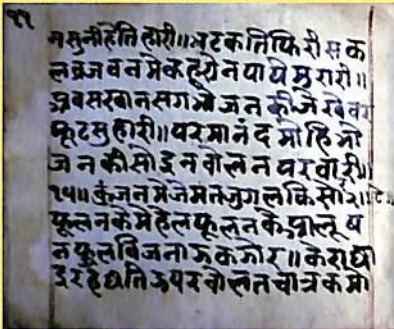 ११
न सुनी है तिहारी॥ भटकति फिरी सक
ल व्रज वन मे कहूं न पाये मुरारी॥
अब सखान संग भोजन कीजे
फूट सुहारी॥ परमानंद मोहि भो
जन की सोंइ न बोलत परवारी॥
१५॥ कुंजन मे जेमत जुगल किसोर॥
फूलन के मेहेल फूलन के
न फूल विजना झकझोर॥ के
इ र हे द्युति ऊपर बोलत चात्रक मो